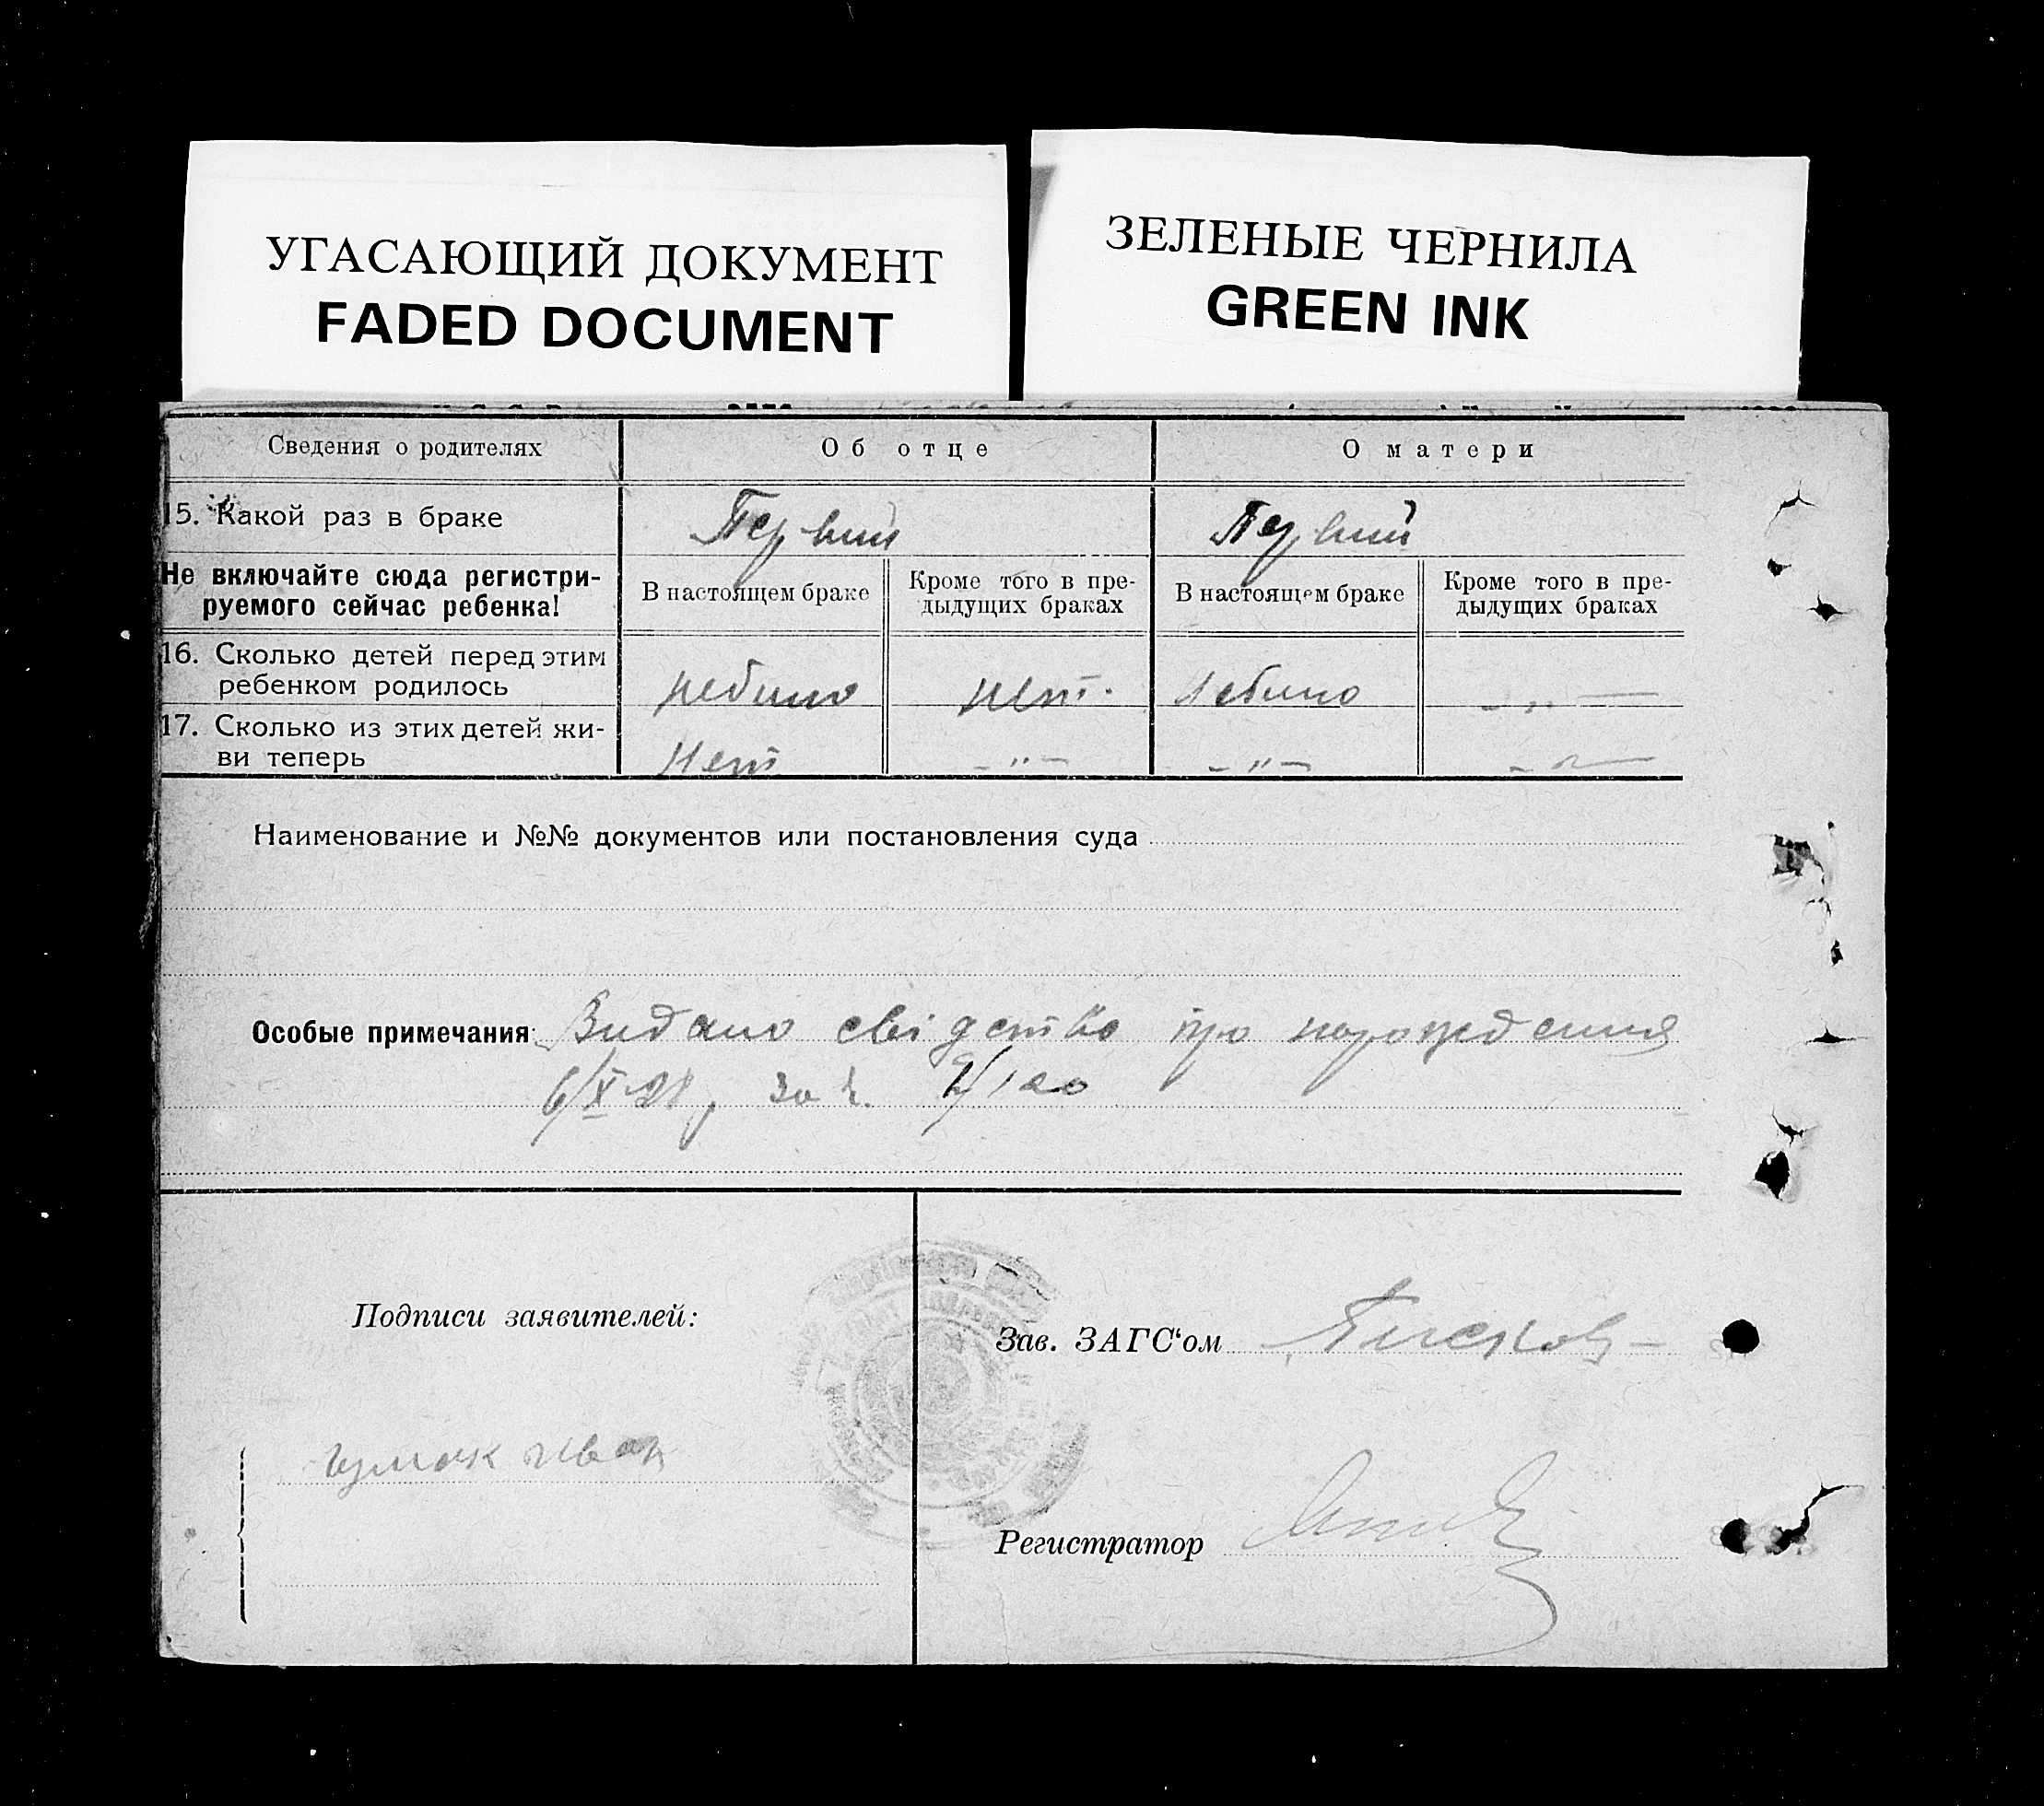 УГАСАЮЩИЙ ДОКУМЕНТ
FADED DOCUMENT
ЗЕЛЕНЫЕ ЧЕРНИЛА
GREEN INK
Сведения о родителях
Об отце
О матери
15. Какой раз в браке
Первий
Первий
Не включайте сюда регистри-
руемого сейчас ребенка!
В настоящем браке
Кроме того в пре-
дыдущих браках
В настоящем браке
Кроме того в пре-
дыдущих браках
16. Сколько детей перед этим
ребенком родилось
небыло
нет.
небыло
- „ —
17. Сколько из этих детей жи-
ви теперь
Нет
- „ -
- „ -
- „ —
Наименование и №№ документов или постановления суда
Особые примечания: Видано свідетво про нарождения
6/X за №
Подписи заявителей:
Зав. ЗАГС‘ом
Иван
Регистратор